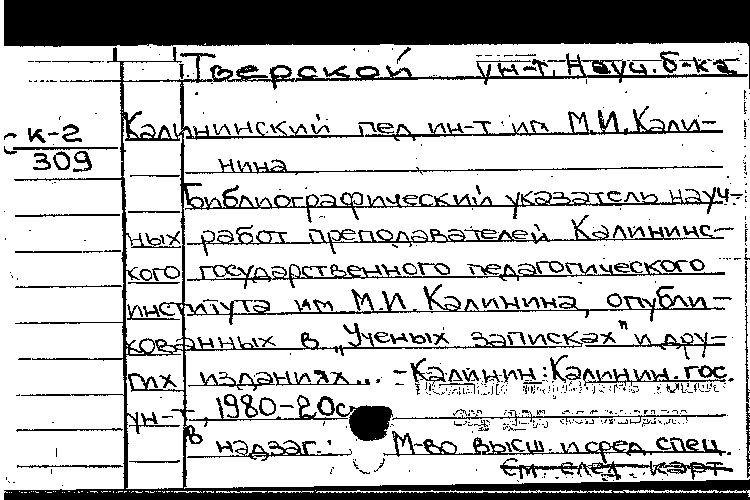 Тверской ун-т. Науч. б-ка
К-2
309
Калининский пед ин-т им М.И. Кали-
нина
Библиографический указатель науч-
ных работ преподавателей Калининс-
кого государственного педагогического
института им М.И Калинина, опубли-
кованных в „Ученых записках" и дру-
гих изданиях... -Калинин: Калинин. гос.
ун-т, 1980-20с
в надзаг.: М-во высш. и сред спец.
См. след. карт